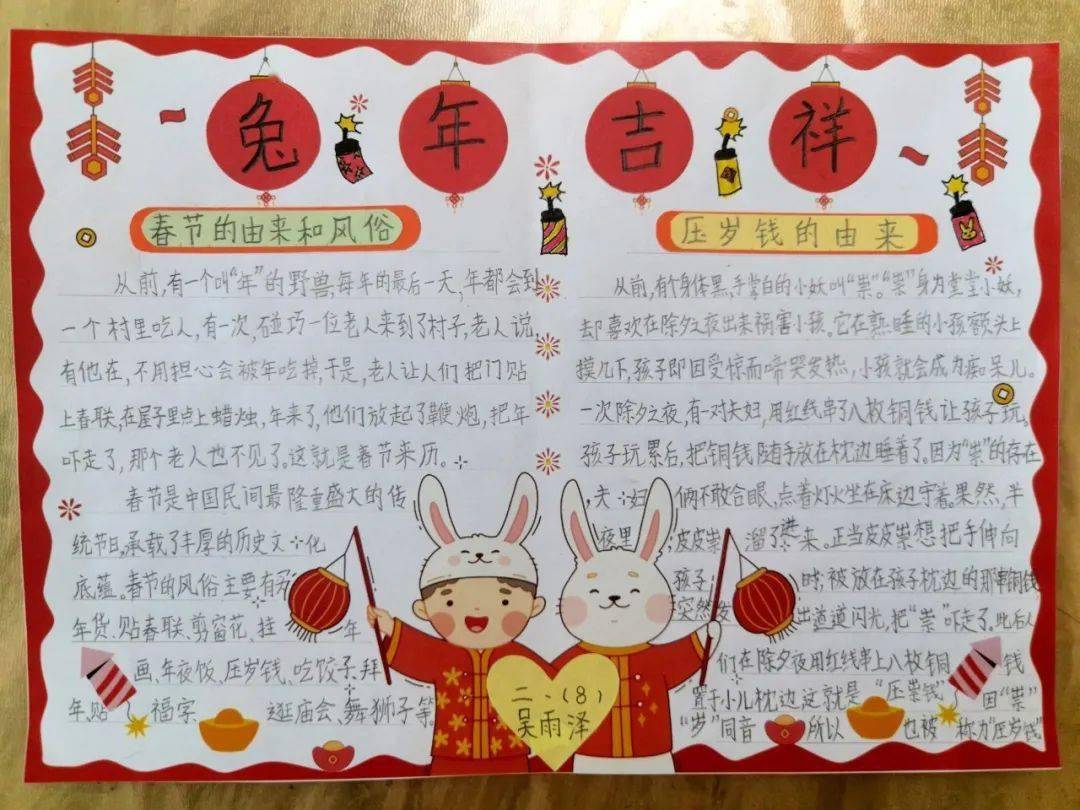 兔年吉祥
春节的由来和风俗
从前,有一个叫“年”的野兽,每年的最后一天,年都会到
一个村里吃人,有一次,碰巧一位老人来到了村子,老人说,
有他在,不用担心会被年吃掉,于是,老人让人们把门贴
上春联,在屋子里点上蜡烛,年来了,他们放起了鞭炮,把年
吓走了,那个老人也不见了。这就是春节来历。
春节是中国民间最隆重盛大的传
统节日,承载了丰厚的历史文化
底蕴。春节的风俗主要有
年货、贴春联、剪窗花、挂年
画、年夜饭、压岁钱、吃饺子、拜
年、贴福字逛庙会、舞狮子等
压岁钱的由来
从前,有个身体黑,手掌白的小妖叫“祟”。“祟”身为堂堂小妖,
却喜欢在除夕之夜出来祸害小孩,它在熟睡的小孩额头上
摸几下,孩子即因受惊而啼哭发热,小孩就会成为痴呆儿。
一次除夕之夜,有一对夫妇,用红线串了八枚铜钱让孩子玩。
孩子玩累后,把铜钱随手放在枕边睡着了。因为“祟”的存在
,夫妇俩不敢合眼,点着灯火坐在床边守着。果然,半
夜里,皮皮祟溜了进来。正当皮皮祟想把手伸向
孩子时,被放在孩子枕边的那串铜钱
突然发出道道闪光,把“祟”吓走了,此后人
们在除夕夜用红线串上八枚铜钱
置于小儿枕边这就是“压祟钱”因“祟”
“岁”同音所以也被称为“压岁钱”
二.(8)
吴雨泽